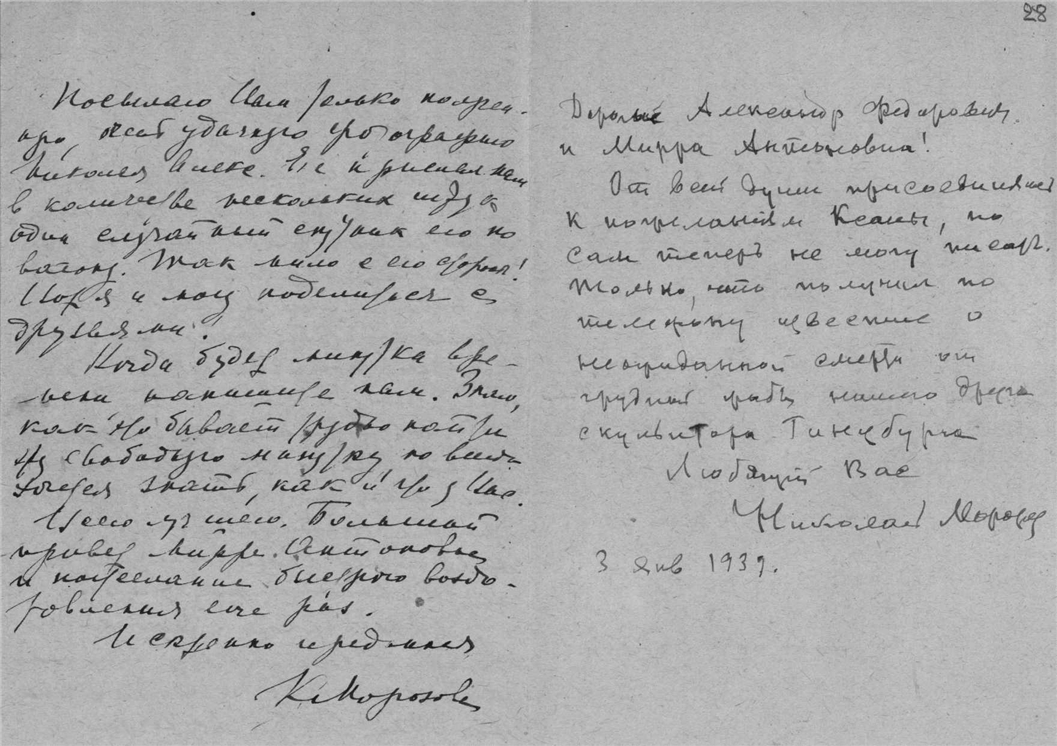 28
Посылаю Вам только
удачную фотографию
Николая Алекс. Ее прислал нам
в количестве нескольких штук
один случайный спутник его по
вагону. Так мило с его стороны!
Вот я и могу поделиться с
друзьями.
Когда будет минутка вре-
мени напишите нам. Знаю,
как это бывает трудно найти
эту свободную минутку но
хочется знать, как и что у Вас.
Всего лучшего. Большой
привет Мирре Антоновне
и пожелание быстрого выздо-
ровления еще раз.
Искренно преданная
К Морозова
Дорогие Александр Федорович
и Мирра Антоновна!
От всей души присоединяюсь
к пожеланиям Ксаны, но
сам теперь не могу писать.
Только, что получил по
телефону известие о
неожиданной смерти от
грудной жабы нашего друга
скульптора Гинцбурга
Любящий Вас
Николай Морозов
3 янв 1939.